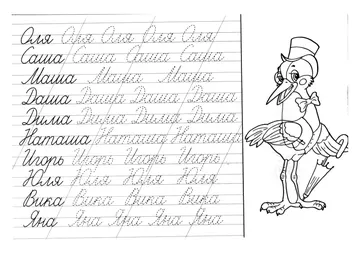 Оля Оля Оля Оля Оля
Саша Саша Саша Саша
Маша Маша Маша
Даша Даша Даша Даша
Дима Дима Дима Дима
Наташа Наташа Наташа
Игорь Игорь Игорь Игорь
Юля Юля Юля Юля
Вика Вика Вика Вика
Яна Яна Яна Яна Яна